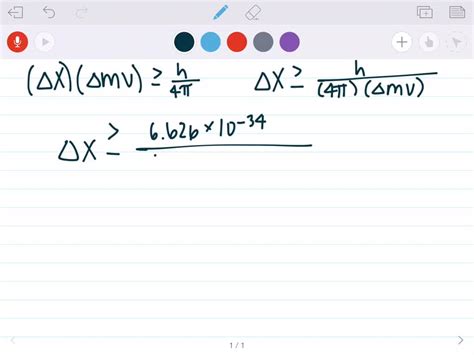 (ΔX)(Δmv) ≥ h/4π   ΔX ≥ h/(4π)(Δmv)
ΔX ≥ 6.626×10⁻³⁴
1 / 1